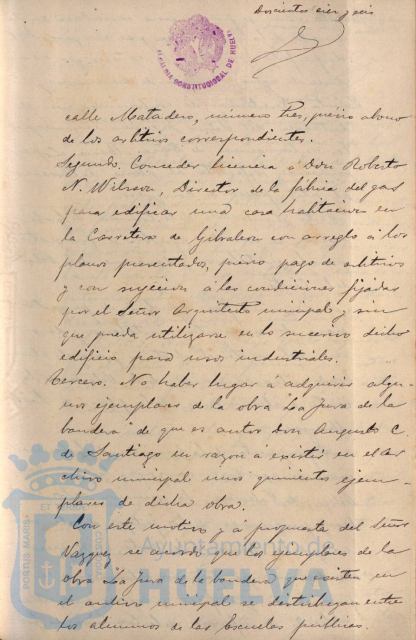 Doscientos diez y seis
ALCALDIA CONSTITUCIONAL DE HUELVA
calle Matadero, número tres, previo abono
de los arbitrios correspondientes.
Segundo. Conceder licencia á Don Roberto
N. Wilson, Director de la fábrica del gas
para edificar una casa habitación en
la Carretera de Gibraleon con arreglo á los
planos presentados, previo pago de arbitrios
y con sujeción á las condiciones fijadas
por el Señor Arquitecto municipal y sin
que pueda utilizarse en lo sucesivo dicho
edificio para usos industriales.
Tercero. No haber lugar á adquirir algu-
nos ejemplares de la obra "La Jura de la
bandera" de que es autor Don Augusto C.
de Santiago en razón a existir en el ar-
chivo municipal unos quinientos ejem-
plares de dicha obra.
Con este motivo y á propuesta del Señor
Vazquez se acordó que los ejemplares de la
obra "La Jura de la bandera" que existen en
el archivo municipal se distribuyan entre
los alumnos de las Escuelas públicas.
PORTUS MARIS
Ayuntamiento de
HUELVA